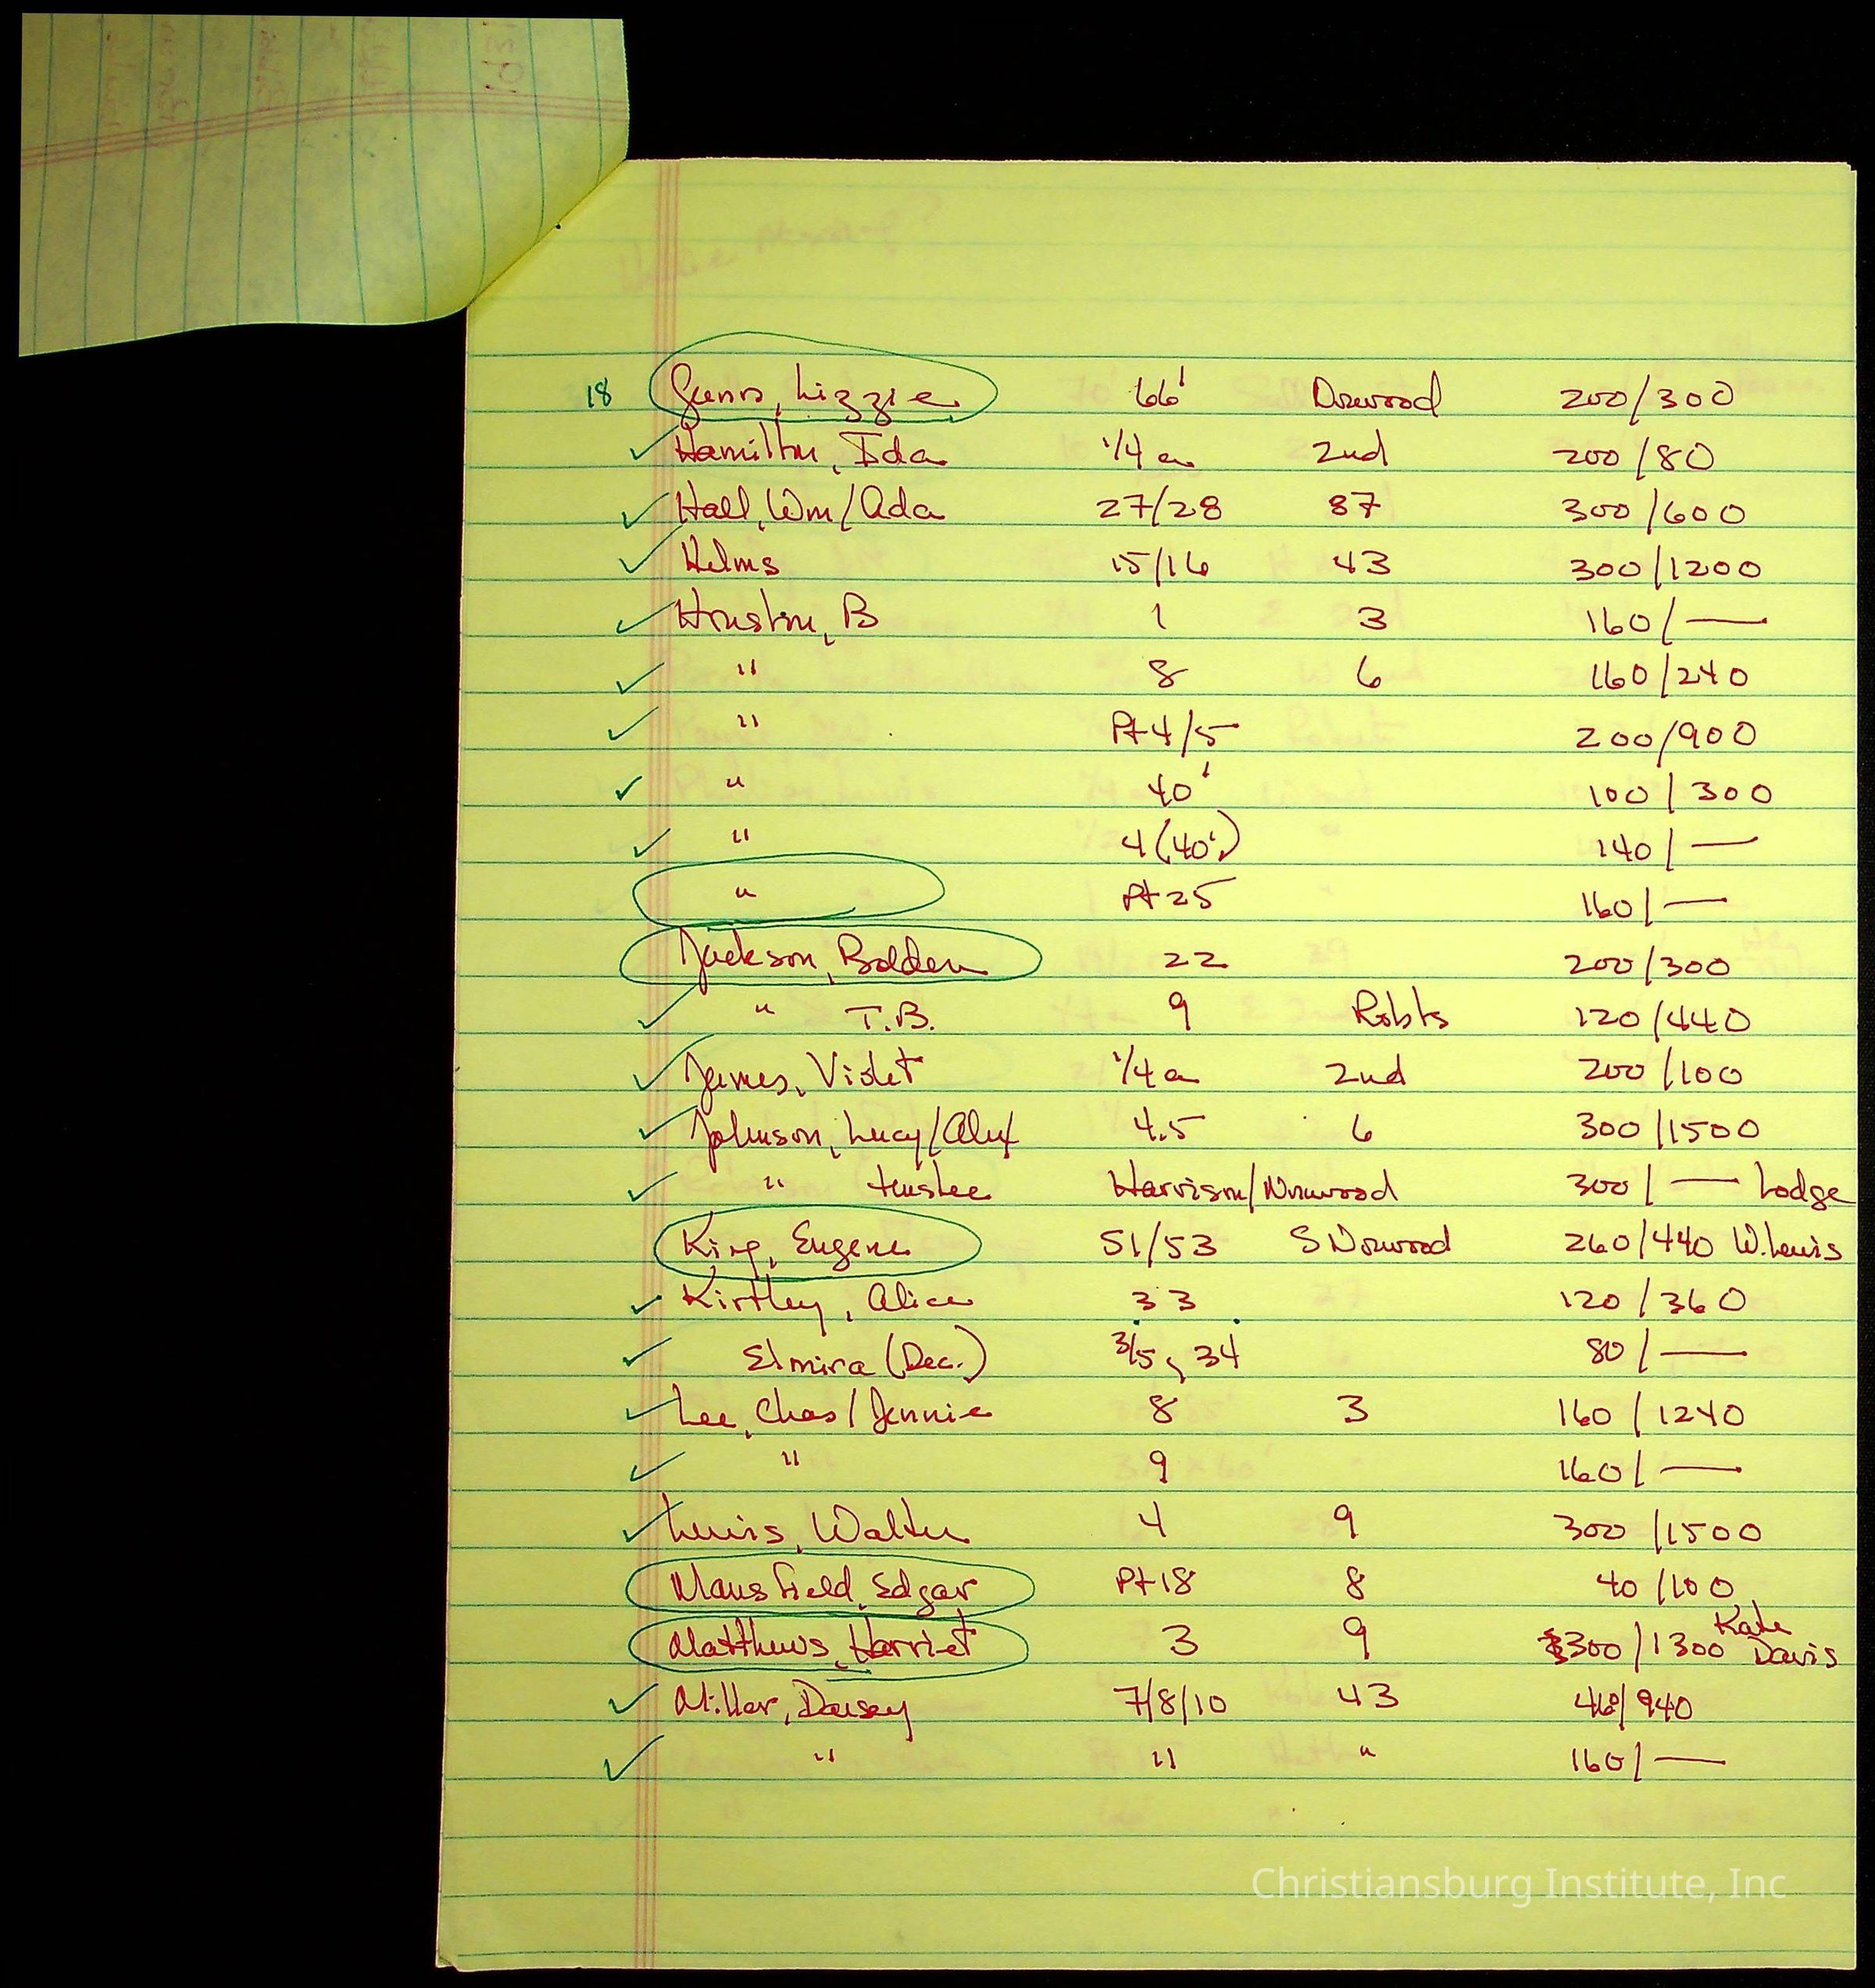 18 Gunn, Lizzie 66' Norwood 200/300
Hamilton, Ida 1/4 a 2nd 200/80
Hall, Wm/Ada 27/28 87 300/600
Helms 15/16 43 300/1200
Houston, B 1 3 160/—
" 8 6 160/240
" Pt 4/5 200/900
" 40' 100/300
" 4 (40') 140/—
" Pt 25 160/—
Jackson, Bolden 22 200/300
" T.B. 9 Robts 120/440
James, Violet 1/4 a 2nd 200/100
Johnson, Lucy/Alex 4,5 6 300/1500
" trustee Harrison/Norwood 300/— Lodge
King, Eugene 51/53 S Norwood 260/440 W. Lewis
Kirtley, Alice 33 120/360
Elmira (Dec.) 3/5, 34 80/—
Lee, Chas/Jennie 8 3 160/1240
" 9 160/—
Lewis, Walter 4 9 300/1500
Mansfield, Edgar Pt 18 8 40/100
Matthews, Harriet 3 9 300/1300 Kate Davis
Miller, Daisey 7/8/10 43 /940
" " " 160/—
Christiansburg Institute, Inc